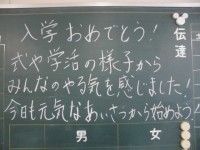 入学おめでとう！
式や学活の様子から
みんなのやる気を感じました！
今日も元気なあいさつから始めよう！
伝達
男
女